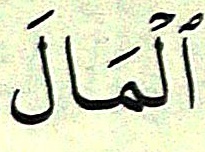 ٱلۡمَالَ